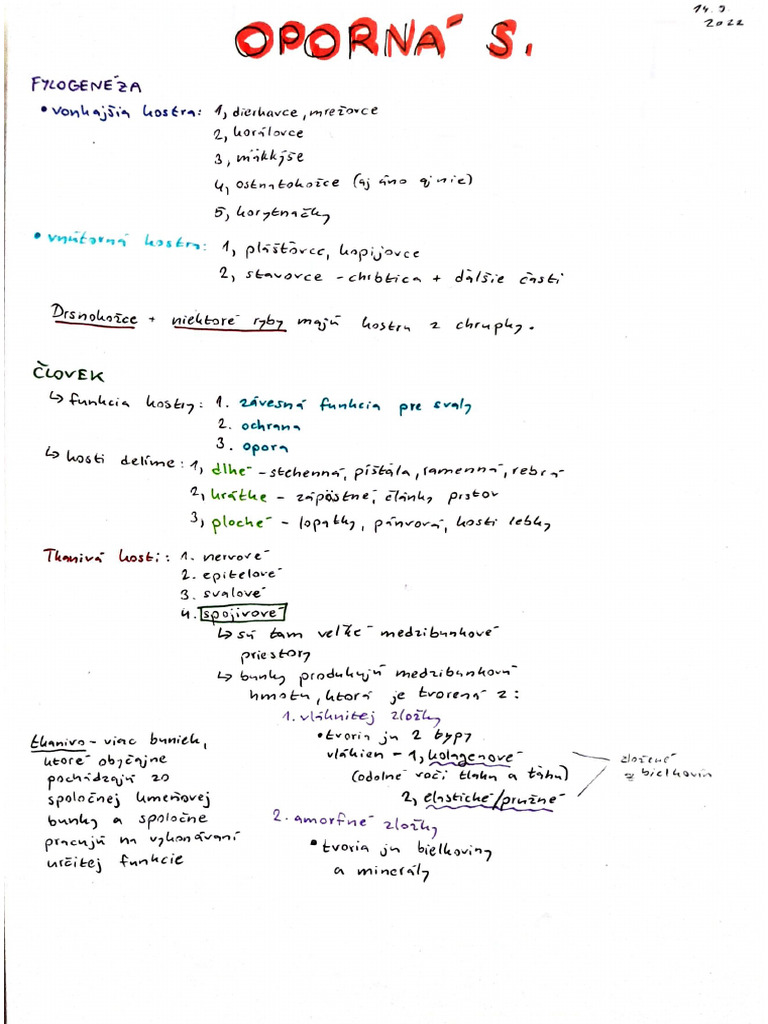 14.9.
2022
OPORNÁ S.
FYLOGENÉZA
• vonkajšia kostra: 1, dierkavce, mrežovce
2, korálovce
3, mäkkýše
4, ostnatokožce (aj áno aj nie)
5, korytnačky
• vnútorná kostra: 1, plášťovce, kopijovce
2, stavovce - chrbtica + ďalšie časti
Drsnokožce + niektoré ryby majú kostru z chrupky.
ČLOVEK
↳ funkcia kostry: 1. závesná funkcia pre svaly
2. ochrana
3. opora
↳ kosti delíme: 1, dlhé - stehenná, píšťala, ramenná, rebrá
2, krátke - zápästné, články prstov
3, ploché - lopatky, pánvová, kosti lebky
Tkanivá kosti: 1. nervové
2. epitelové
3. svalové
4. spojivové
↳ sú tam veľké medzibunkové
priestory
↳ bunky produkujú medzibunkovú
hmotu, ktorá je tvorená z:
1. vláknitej zložky
• tvoria ju 2 typy
vlákien - 1, kolagenové
(odolné voči tlaku a ťahu)
2, elastické/pružné
zložené
z bielkovín
2. amorfné zložky
• tvoria ju bielkoviny
a minerály
tkanivo - viac buniek,
ktoré obyčajne
pochádzajú zo
spoločnej kmeňovej
bunky a spoločne
pracujú na vykonávaní
určitej funkcie